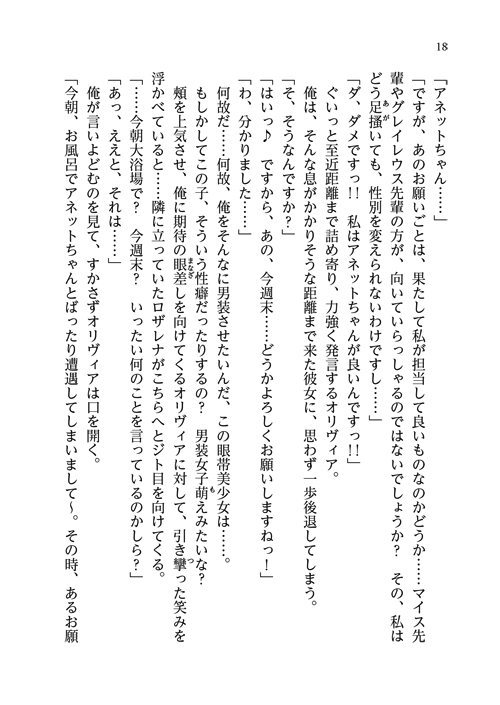 18
「アネットちゃん……」
「ですが、あのお願いごとは、果たして私が担当して良いものなのかどうか……マイス先
輩やグレイレウス先輩の方が、向いていらっしゃるのではないでしょうか？　その、私は
どう足掻いても、性別を変えられないわけですし……」
「ダ、ダメですっ!!　私はアネットちゃんが良いんですっ!!」
ぐいっと至近距離まで詰め寄り、力強く発言するオリヴィア。
俺は、そんな息がかかりそうな距離まで来た彼女に、思わず一歩後退してしまう。
「そ、そうなんですか？」
「はいっ♪　ですから、あの、今週末……どうかよろしくお願いしますねっ！」
「わ、分かりました……」
何故だ……何故、俺をそんなに男装させたいんだ、この眼帯美少女は……。
もしかしてこの子、そういう性癖だったりするの？　男装女子萌えみたいな？
頬を上気させ、俺に期待の眼差しを向けてくるオリヴィアに対して、引き攣った笑みを
浮かべていると……隣に立っていたロザレナがこちらへとジト目を向けてくる。
「……今朝大浴場で？　今週末？　いったい何のことを言っているのかしら？」
「あっ、ええと、それは……」
俺が言いよどむのを見て、すかさずオリヴィアは口を開く。
「今朝、お風呂でアネットちゃんとばったり遭遇してしまいまして～。その時、あるお願